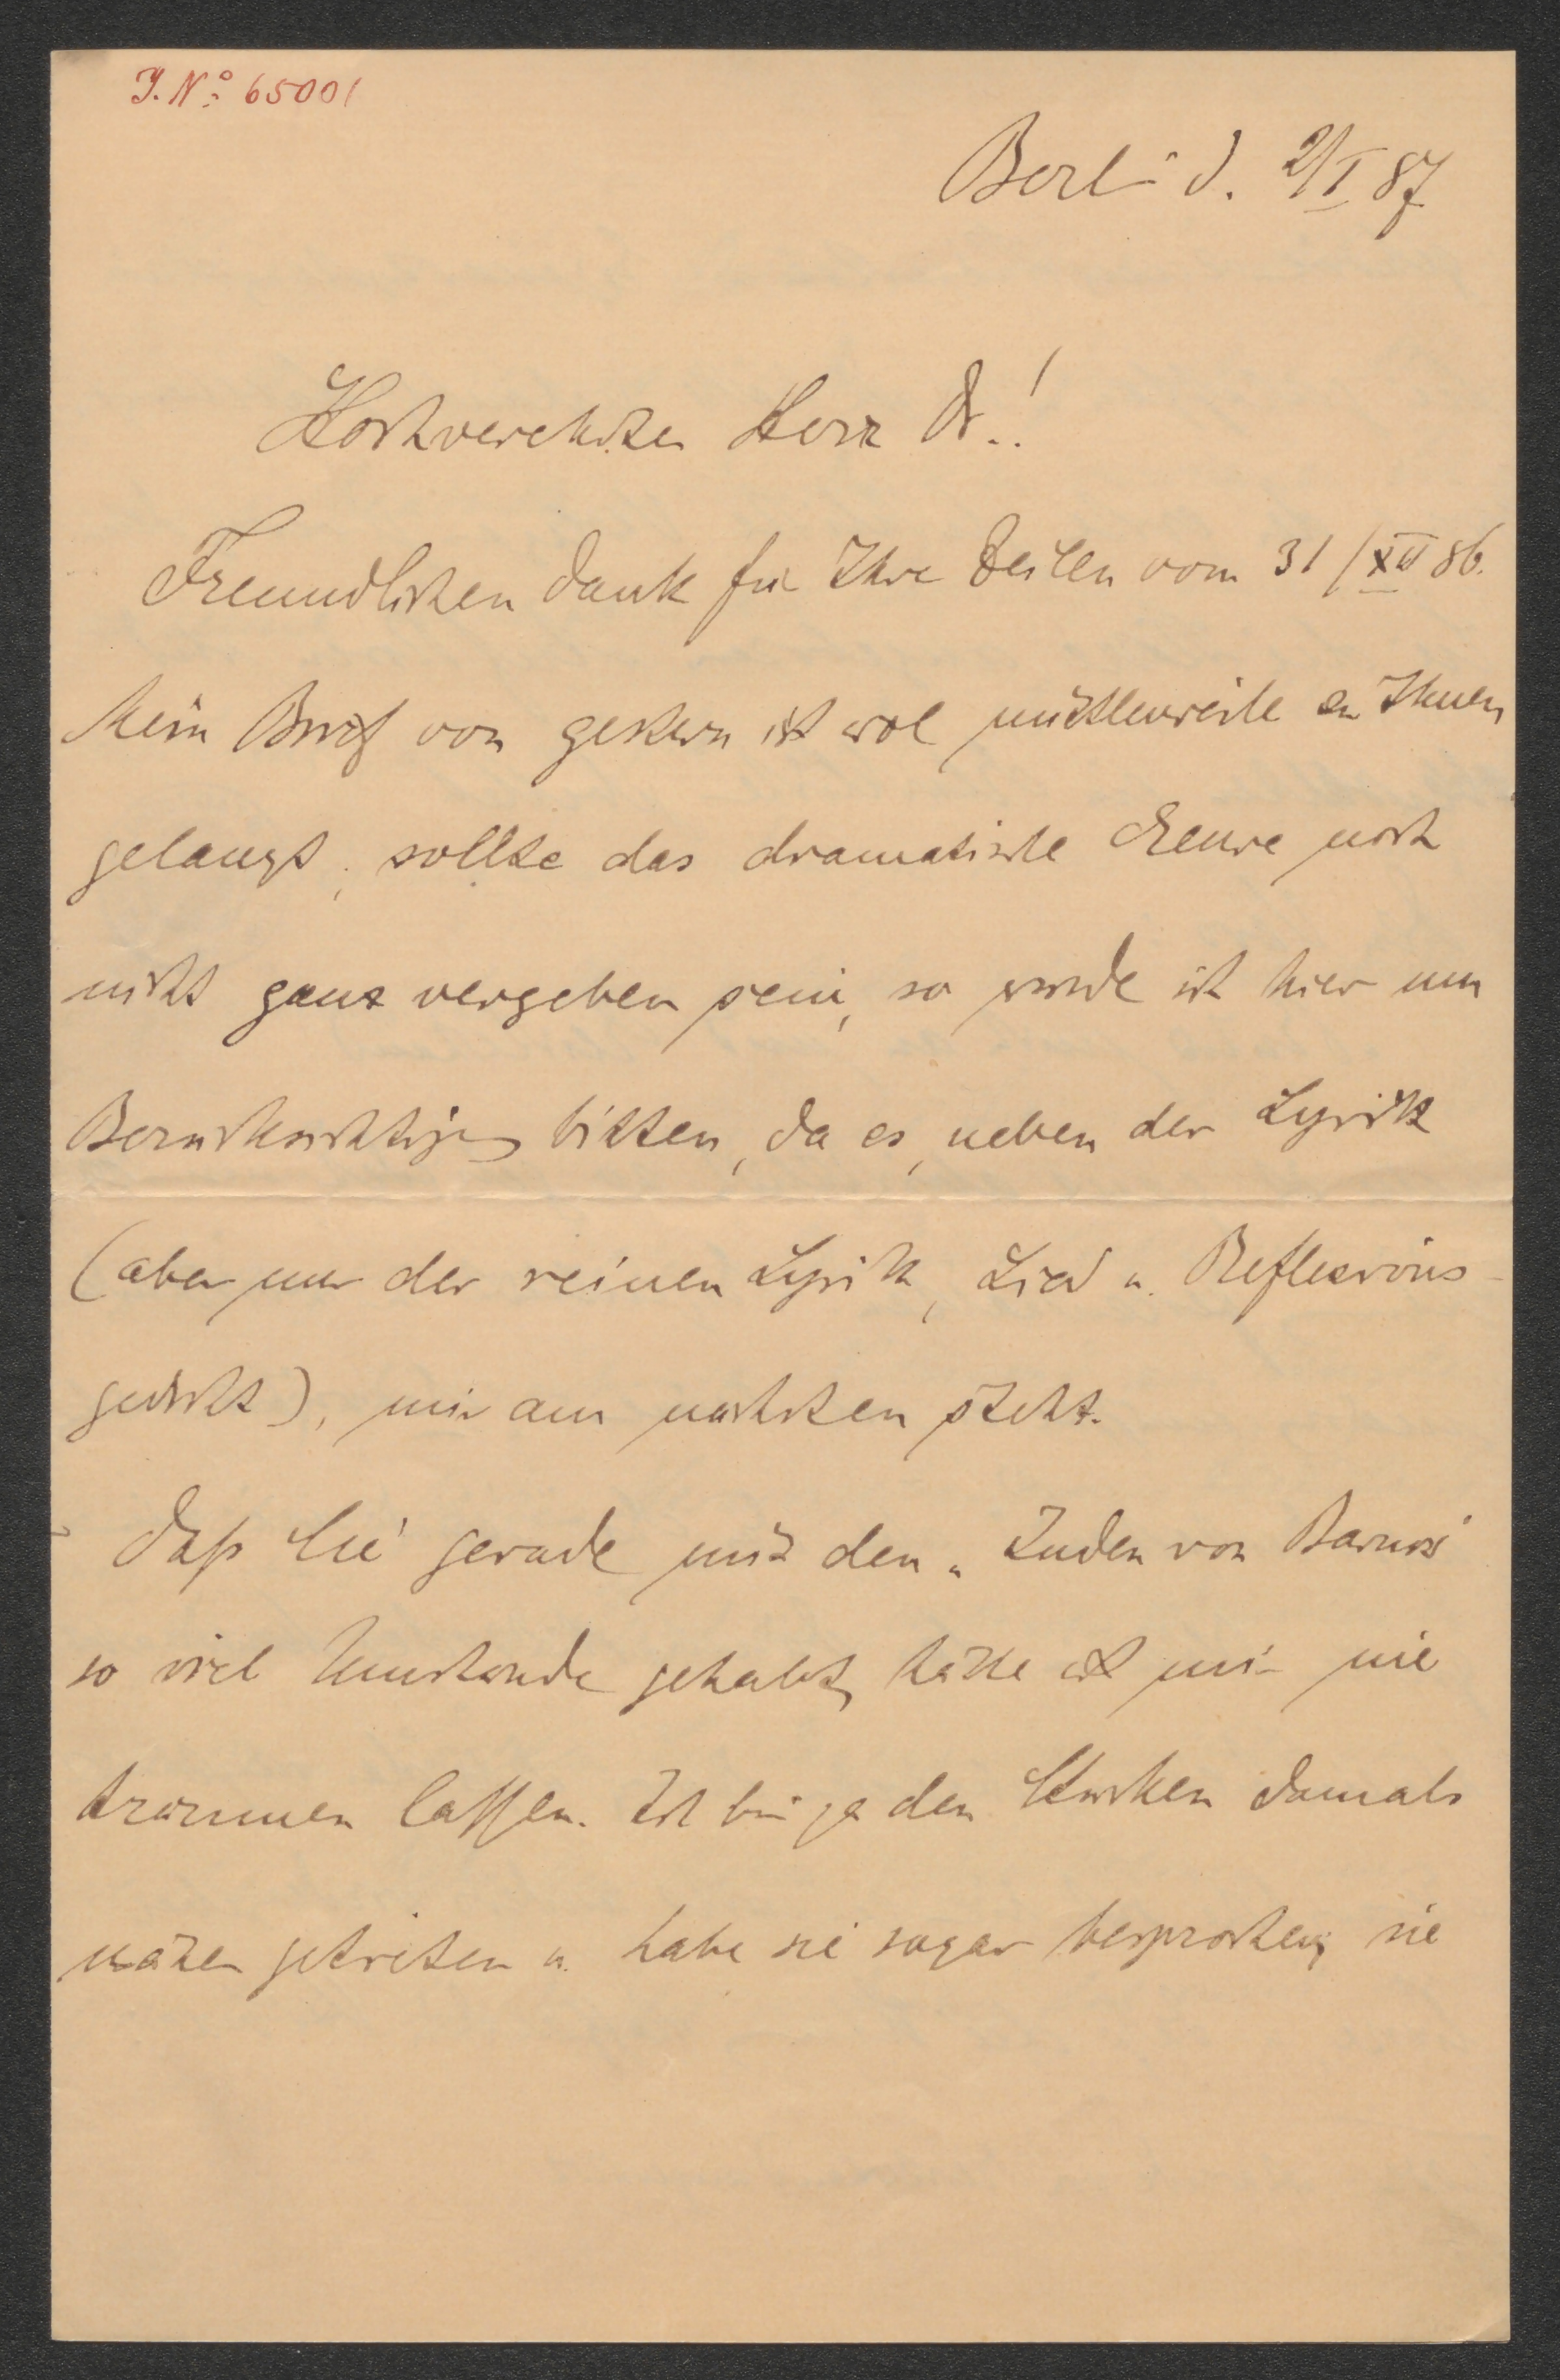 J. N.º 65001
Berlin d. 2/I 87
Hochverehrter Herr Dr.!
Freundlichen Dank für Ihre Zeilen vom 31/XII 86.
Mein Brief von gestern ist wol mittlerweile an Ihnen
gelangt; sollte das dramatische Genre noch
nicht ganz vergeben sein, so würde ich hier um
Berücksichtigung bitten, da es, neben der Lyrik
(aber nur der reinen Lyrik, Lied u. Reflexions-
gedicht), mir am nächsten steht.
Daß Sie gerade mit den „Juden von Barnow"
so viel Umstände gehabt, hätte ich mir nie
träumen lassen. Ich bin ja den Stücken damals
näher getreten u. habe sie sogar besprochen; sie